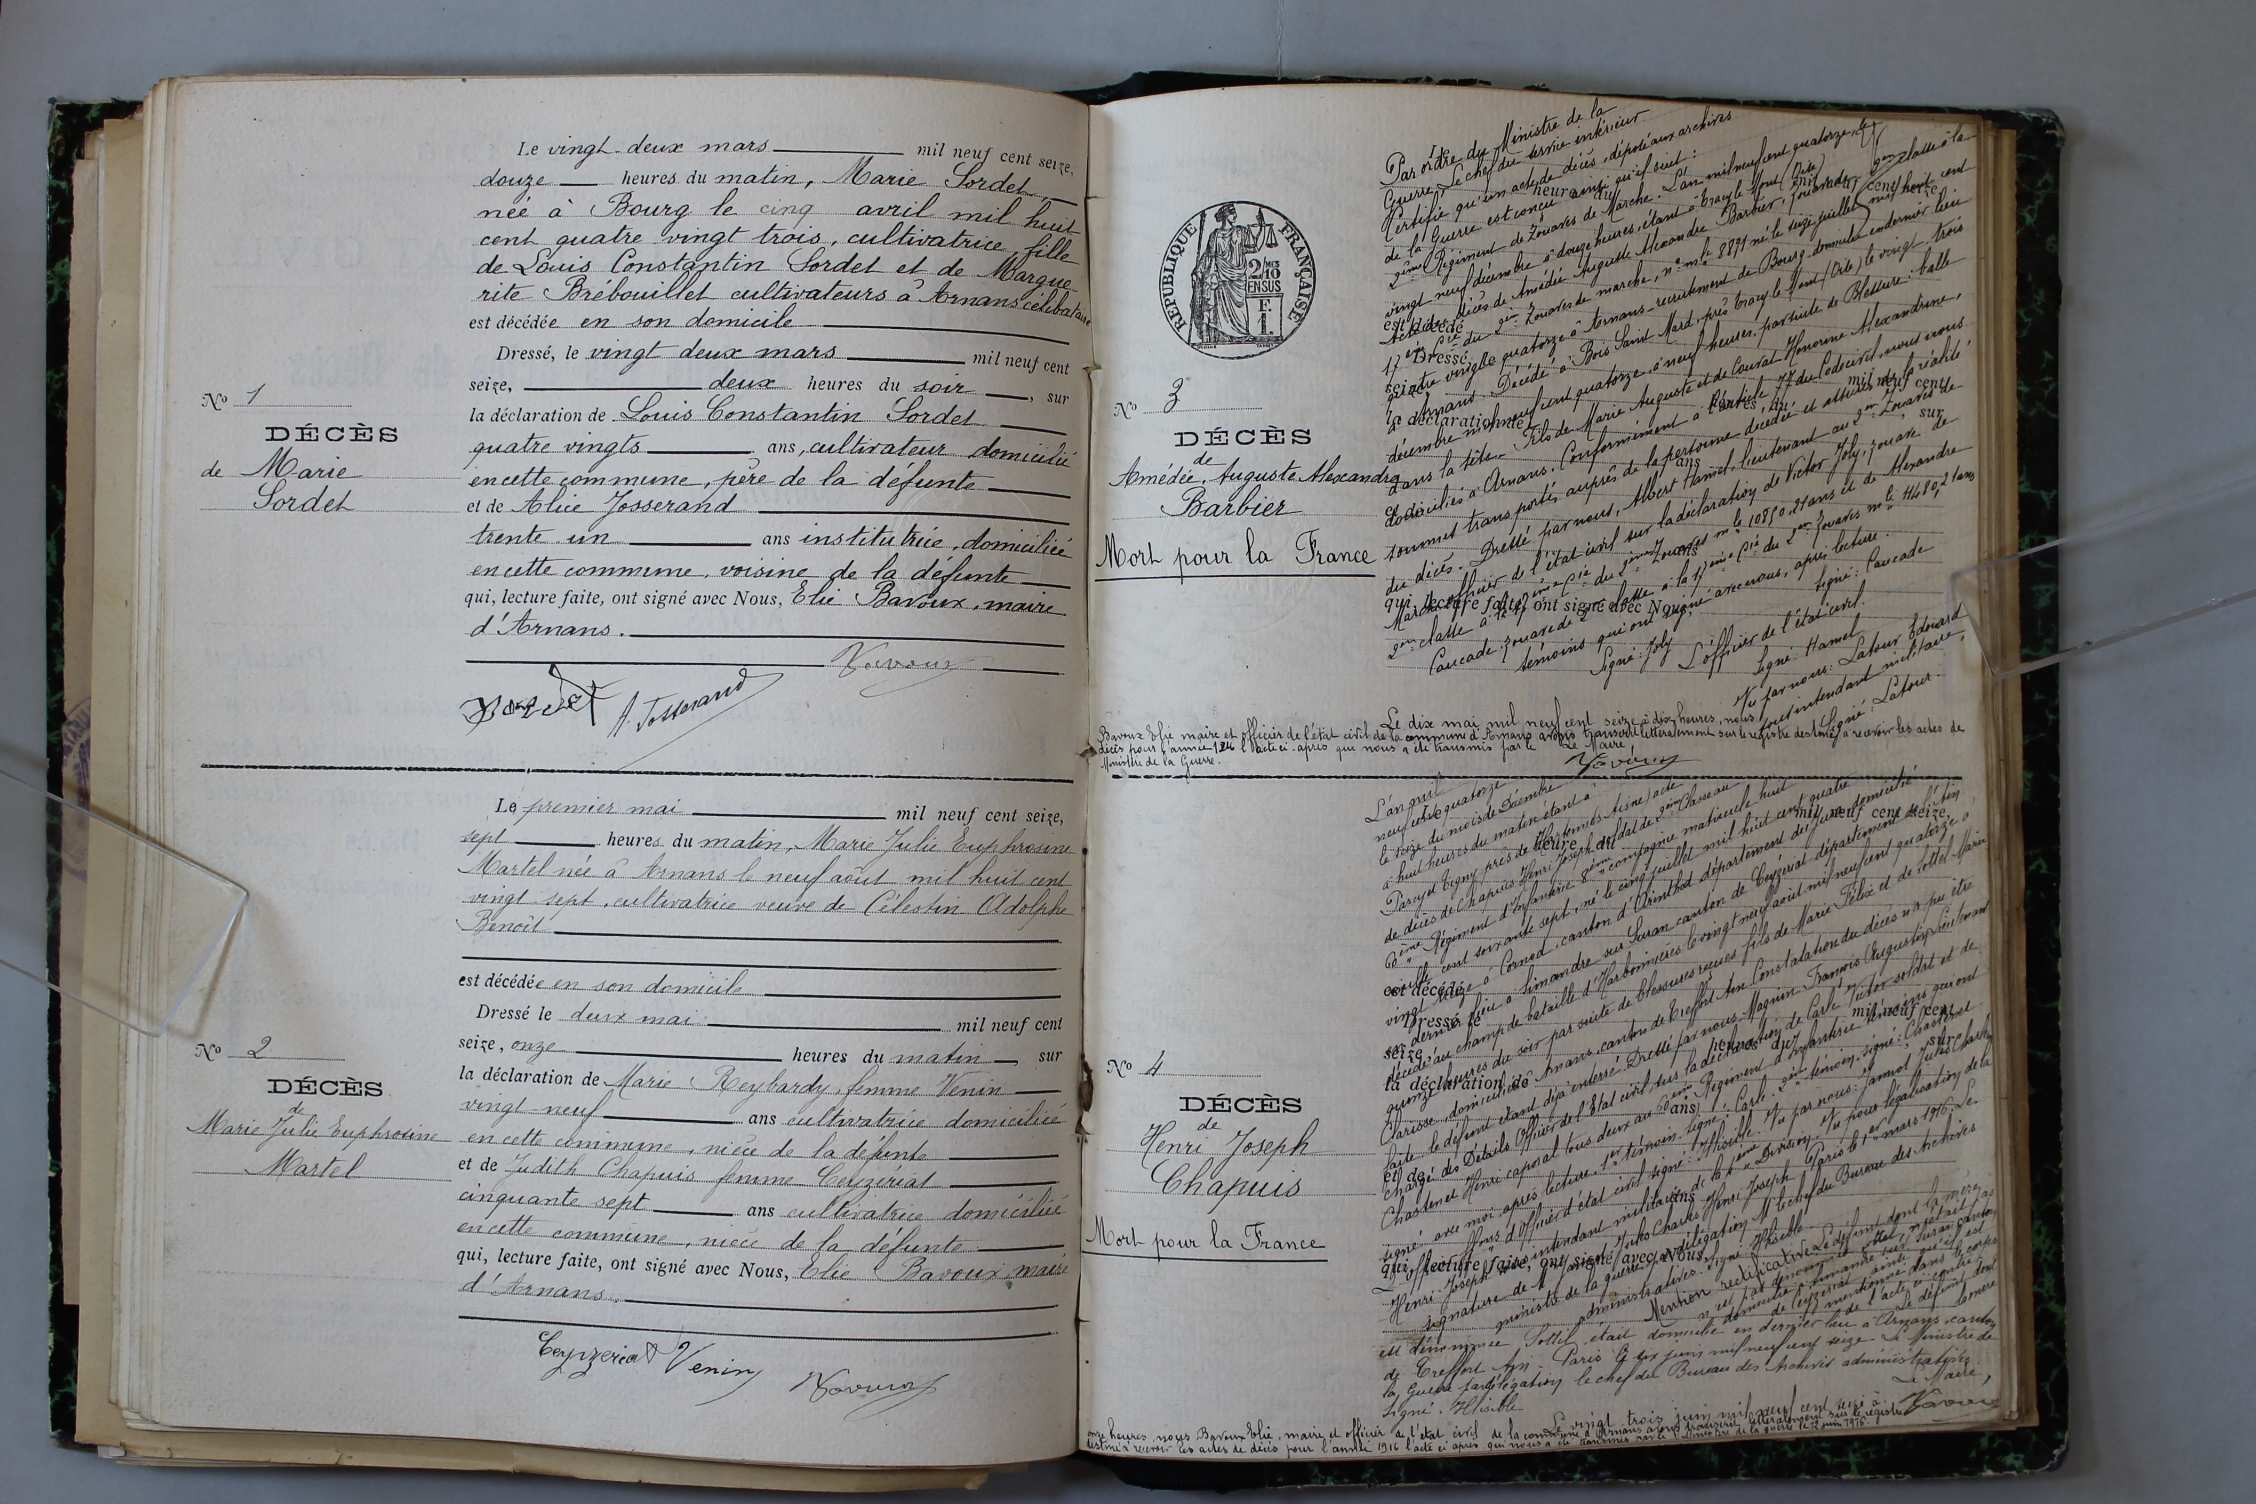 Le vingt-deux mars mil neuf cent seize,
douze heures du matin, Marie Sordet
née à Bourg le cinq avril mil huit
cent quatre vingt trois, cultivatrice, fille
de Louis Constantin Sordet et de Margue
rite Brébouillet cultivateurs à Arnans célibataire
est décédée en son domicile
Dressé, le vingt deux mars mil neuf cent
seize, deux heures du soir, sur
la déclaration de Louis Constantin Sordet
quatre vingts ans, cultivateur domicilié
en cette commune, père de la défunte
et de Alice Josserand
trente un ans institutrice, domiciliée
en cette commune, voisine de la défunte
qui, lecture faite, ont signé avec Nous, Elie Bavoux, maire
d'Arnans.
Bavoux
Sordet A. Josserand
No 1
DÉCÈS
de Marie
Sordet
Le premier mai mil neuf cent seize,
sept heures du matin, Marie Julie Euphrosine
Martel née à Arnans le neuf août mil huit cent
vingt-sept, cultivatrice veuve de Célestin Adolphe
Benoît
est décédée en son domicile
Dressé le deux mai mil neuf cent
seize, onze heures du matin, sur
la déclaration de Marie Reybardy, femme Venin
vingt neuf ans cultivatrice domiciliée
en cette commune, nièce de la défunte
et de Judith Chapuis femme Ceyzériat
cinquante sept ans cultivatrice domiciliée
en cette commune, nièce de la défunte
qui, lecture faite, ont signé avec Nous, Elie Bavoux, maire
d'Arnans.
Ceyzeriat Venin Bavoux
No 2
DÉCÈS
de
Marie Julie Euphrosine
Martel
RÉPUBLIQUE FRANÇAISE
2/10 EN SUS
No 3
DÉCÈS
de
Amédée, Auguste Alexandre
Barbier
Mort pour la France
Par ordre du Ministre de la
Guerre, Le chef du service intérieur
Certifie qu'un acte de décès, déposé aux archives
de la Guerre est conçu ainsi qu'il suit :
2ème Régiment de Zouaves de Marche. L'an mil neuf cent quatorze, le
vingt neuf décembre à douze heures, étant à Tracy le Mont (Oise)
Acte de décès de Amédée Auguste Alexandre Barbier, zouave de 2ème classe à la
17ème Cie du 2ème Zouaves de marche, né le seize juillet mil huit cent
quatre vingt quatorze à Arnans, recrutement de Bourg domicilié en dernier lieu
à Arnans. Décédé à Bois Saint Mard, près Tracy le Mont (Oise) le vingt trois
décembre mil neuf cent quatorze à neuf heures, par suite de Blessure : balle
dans la tête. Fils de Marie Auguste et de Couvat Honorine Alexandrine,
domiciliés à Arnans. Conformément à l'article 77 du Code civil, nous nous
sommes transportés auprès de la personne décédée et assurés de la réalité
du décès. Dressé par nous, Albert Hamel, lieutenant au 2ème Zouaves de
Marche officier de l'état civil sur la déclaration de Victor Joly, zouave de
2ème classe à la 17ème Cie du 2ème Zouaves mle 10850, 21 ans et de Alexandre
Caucade, zouave de 2ème classe à la 17ème Cie du 2ème Zouaves mle 11480, 21 ans
témoins qui ont signé avec nous, après lecture.
Signé : Joly Signé : Caucade
L'officier de l'état civil.
Signé : Hamel
Vu par nous : Latour Edouard
sous intendant militaire,
Signé : Latour.
Le dix mai mil neuf cent seize à dix heures, nous
Bavoux Elie maire et officier de l'état civil de la commune d'Arnans avons transcrit littéralement sur le registre destiné à recevoir les actes de
décès pour l'année 1916 l'acte ci-après que nous a été transmis par le
Ministre de la Guerre.
Le Maire
Bavoux
No 4
DÉCÈS
de
Henri Joseph
Chapuis
Mort pour la France
L'an mil
neuf cent quatorze
le seize du mois de Décembre
à huit heures du matin étant à
Parcy et Tigny près de Hartennes (Aisne) acte
de décès de Chapuis Henri Joseph soldat de 2ème Classe au
60ème Régiment d'Infanterie 8ème compagnie matricule huit
mille cent soixante sept, né le cinq juillet mil huit cent quatre
vingt seize à Cornod, canton d'Arinthod département du Jura domicilié
en dernier lieu à Simandre sur Suran canton de Ceyzériat département de l'Ain
décédé au champ de bataille d'Harbonnières le vingt neuf août mil neuf cent quatorze à
quinze heures du soir par suite de blessures reçues fils de Marie Félix et de Sottel Marie
Clarisse, domiciliés à Arnans, canton de Treffort Ain. Constatation du décès n'a pu être
faite le défunt étant déjà enterré. Dressé par nous Magnin François Augustin Lieutenant
chargé des Détails Officier de l'Etat civil sur la déclaration de Carle Victor soldat et de
Chastenet Henri caporal tous deux au 60ème Régiment d'Infanterie témoins qui ont
signé avec moi après lecture. 1er témoin signé : Carle, 2ème témoin, signé : Chastenet
L'officier d'état civil signé : Illisible. Vu par nous : Jannot Jules Charles
Henri Joseph sous intendant militaire de la Division. Vu pour légalisation de la
signature de M. Jannot Jules Charles Henri Joseph Paris le 1er mars 1916. Le
ministre de la guerre par délégation Mr le chef du Bureau des Archives
administratives. Signé Illisible.
Mention rectificative Le défunt dont la mère
est dénommée Sottil, était domicilié en dernier lieu à Arnans, canton
de Treffort Ain. Paris le six juin mil neuf cent seize Le Ministre de
la Guerre par délégation le chef du Bureau des Archives administratives
Signé : Illisible
Le Maire,
Bavoux
Le vingt trois juin mil neuf cent seize à
onze heures, nous Bavoux Elie, maire et officier de l'état civil de la commune d'Arnans avons transcrit littéralement sur le registre
destiné à recevoir les actes de décès pour l'année 1916 l'acte ci après que nous a été transmis par le Ministre de la guerre le 12 juin 1916